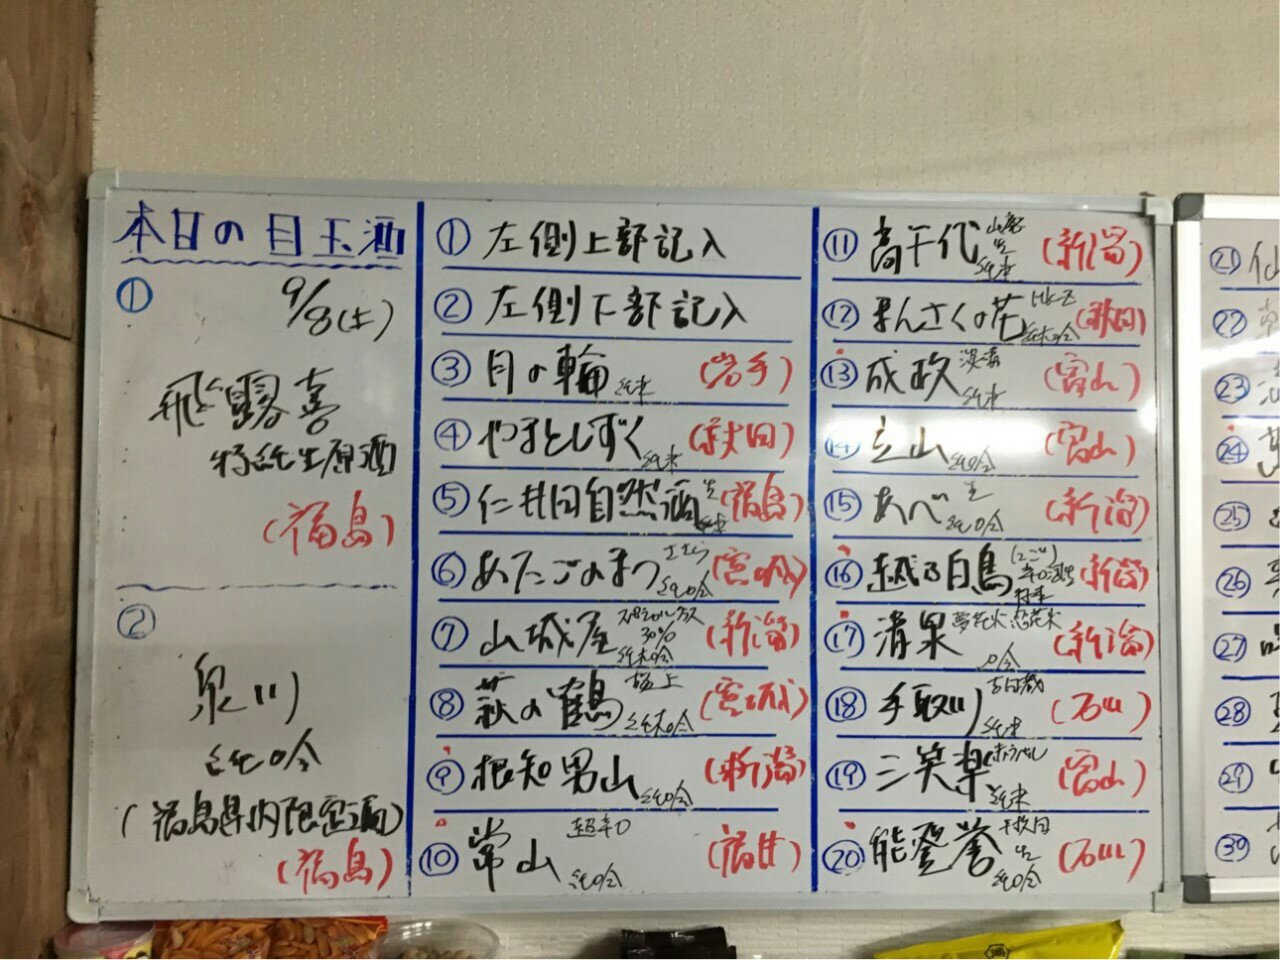 本日の目玉酒
① 9/8(土)
飛露喜
特純生原酒
(福島)
②
泉川
純吟
(福島県内限定酒)
(福島)
① 左側上部記入
② 左側下部記入
③ 月の輪 純米 (岩手)
④ やまとしずく 純米 (秋田)
⑤ 仁井田自然酒 生 純米 (福島)
⑥ あたごのまつ ささら 純吟 (宮城)
⑦ 山城屋 スペシャルクラス 30% 純米吟 (新潟)
⑧ 萩の鶴 極上 純米吟 (宮城)
⑨ 根知男山 純吟 (新潟)
⑩ 常山 超辛口 純吟 (福井)
⑪ 高千代 山廃 生 純米 (新潟)
⑫ まんさくの花 純米吟 (秋田)
⑬ 成政 純米 (富山)
⑭ 立山 純吟 (富山)
⑮ あべ 生 純吟 (新潟)
⑯ 越乃白鳥 (にごり) (新潟)
⑰ 清泉 吟 (新潟)
⑱ 手取川 吉田蔵 純米 (石川)
⑲ 三笑楽 純米 (富山)
⑳ 能登誉 生 純吟 (石川)
㉑ 仙
㉒
㉓
㉔
㉕
㉖
㉗
㉘
㉙
㉚